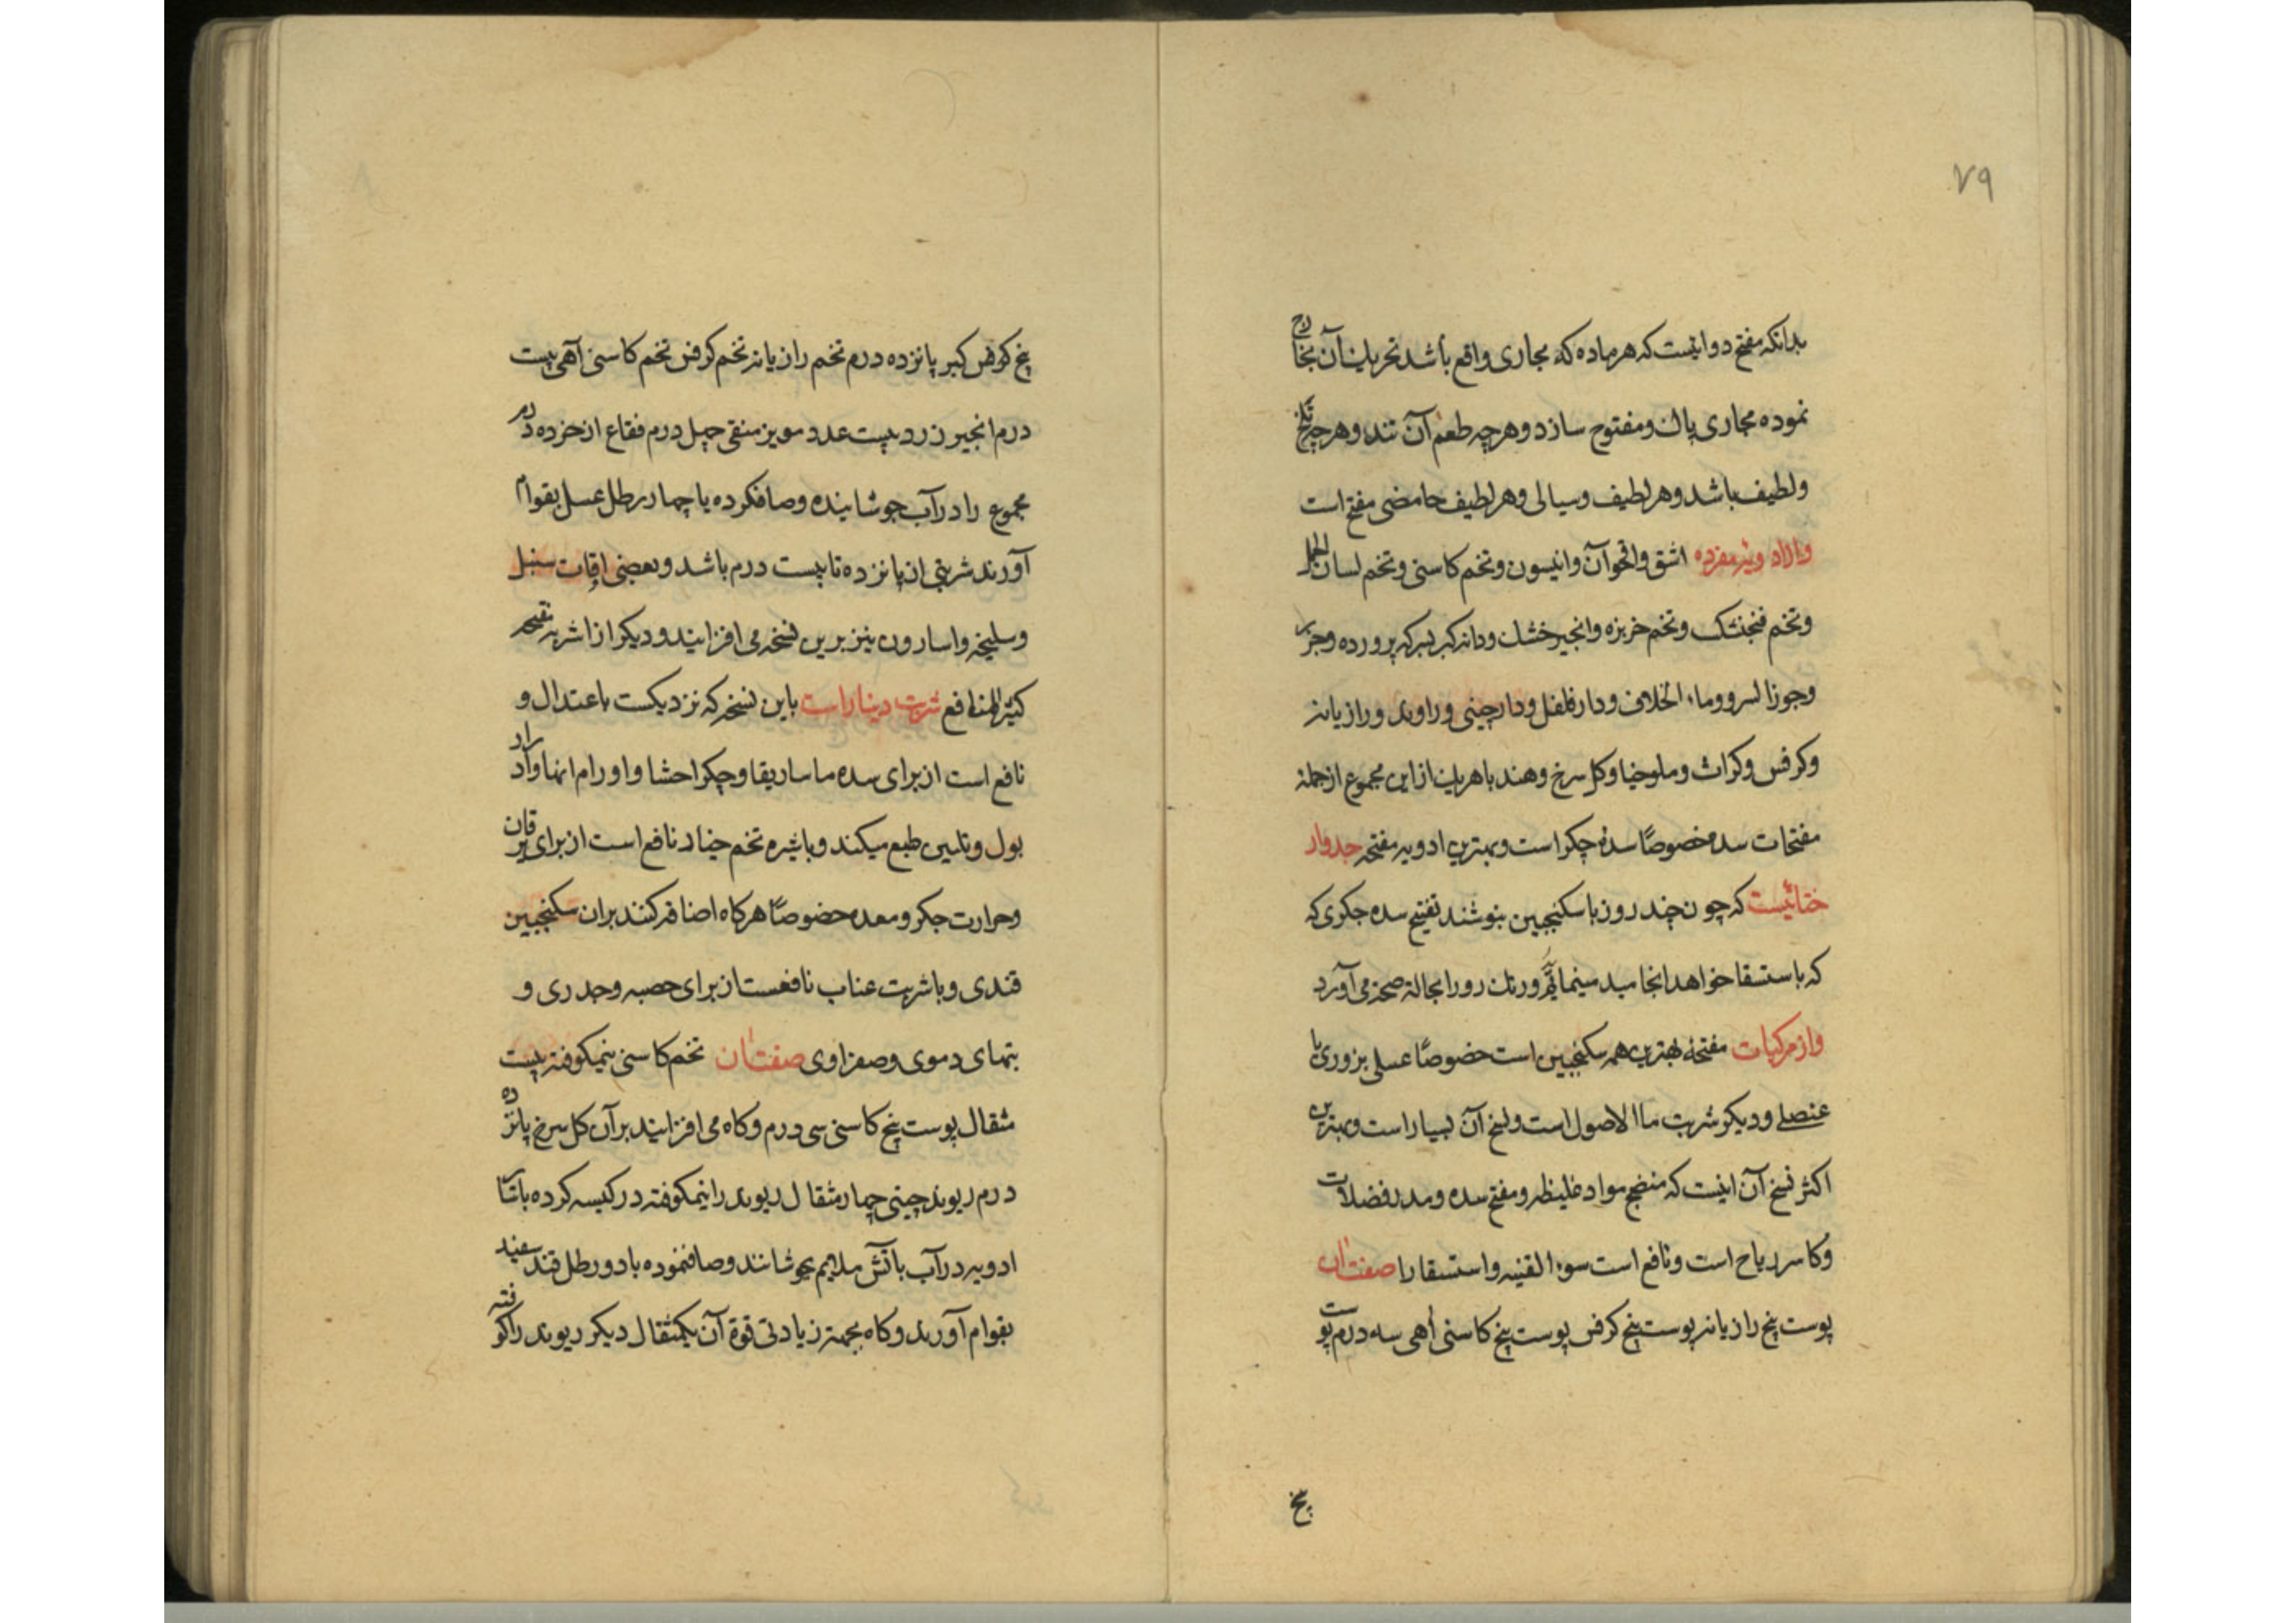 ۷۹
بدانکه مفتح دوائیست که هر ماده که بمجاری واقع باشد تحریک آن بخارج
نموده مجاری پاک و مفتوح سازد و هرچه طعم آن تند و هرچه تلخ
و لطیف باشد و هر لطیف و سیالی و هر لطیف حامضی مفتح است
و از ادویه مفرده اشق و اقحوان و انیسون و تخم کاسنی و تخم لسان الحمل
و تخم فنجنشک و تخم خربزه و انجیر خشک و دانه کبر بسرکه پرورده و جزر
و جوز السرو و ماء الخلاف و دار فلفل و دارچینی و راوند و رازیانه
و کرفس و کراث و ملوخیا و کل سرخ و هندبا هر یک از این مجموع از جمله
مفتحات سده خصوصًا سدهٔ جکر است و بهترین ادویه مفتحه جدوار
ختائیست که چون چند روز با سکنجبین بنوشند تفتیح سده جکری که
که باستسقا خواهد انجامید مینماید و رنک رو را بحالة صحة می آورد
و از مرکبات مفتحه بهترین همه سکنجبین است خصوصًا عسلی بزوری یا
عنصلی و دیکر شربت ماا لاصول است و نسخ آن بسیار است و بهترین
اکثر نسخ آن اینست که منضج مواد غلیظه و مفتح سده و مدر فضلات
و کاسر ریاح است و نافع است سوء القنیه و استسقا را صفت آن
پوست بیخ رازیانه پوست بیخ کرفس پوست بیخ کاسنی اهی سه درم پوست
بیخ
بیخ کرفس کبیر پانزده درم تخم رازیانه تخم کرفس تخم کاسنی آهی بیست
درم انجیر زرد بیست عدد مویز منقی چهل درم فقاع اذخر ده درم
مجموع را در آب جوشانیده و صاف کرده با چهار رطل عسل بقوام
آورند شربتی از پانزده تا بیست درم باشد و بعضی اوقات سنبل
و سلیخه و اسارون نیز برین نسخه می افزایند و دیکر از اشربه مفتحه
کثیر المنافع شربت دینار است باین نسخه که نزدیکست باعتدال و
نافع است از برای سده ماساریقا و جکر احشا و اورام انها و ادرار
بول و تلیین طبع میکند و با شیره تخم خیار نافع است از برای یرقان
و حرارت جکر و معده خصوصًا هرکاه اضافه کنند بران سکنجبین
قندی و با شربت عناب نافعست از برای حصبه و جدری و
تبهای دموی و صفراوی صفت آن تخم کاسنی نیمکوفته بیست
مثقال پوست بیخ کاسنی سی درم و کاه می افزایند بر آن کل سرخ پانزده
درم ریوند چینی چهار مثقال ریوند را نیمکوفته در کیسه کرده با سائر
ادویه در آب با آتش ملایم بجوشانند و صاف نموده با دو رطل قند سفید
بقوام آورند و کاه بجهته زیادتی قوة آن یکمثقال دیکر ریوند را کوفته